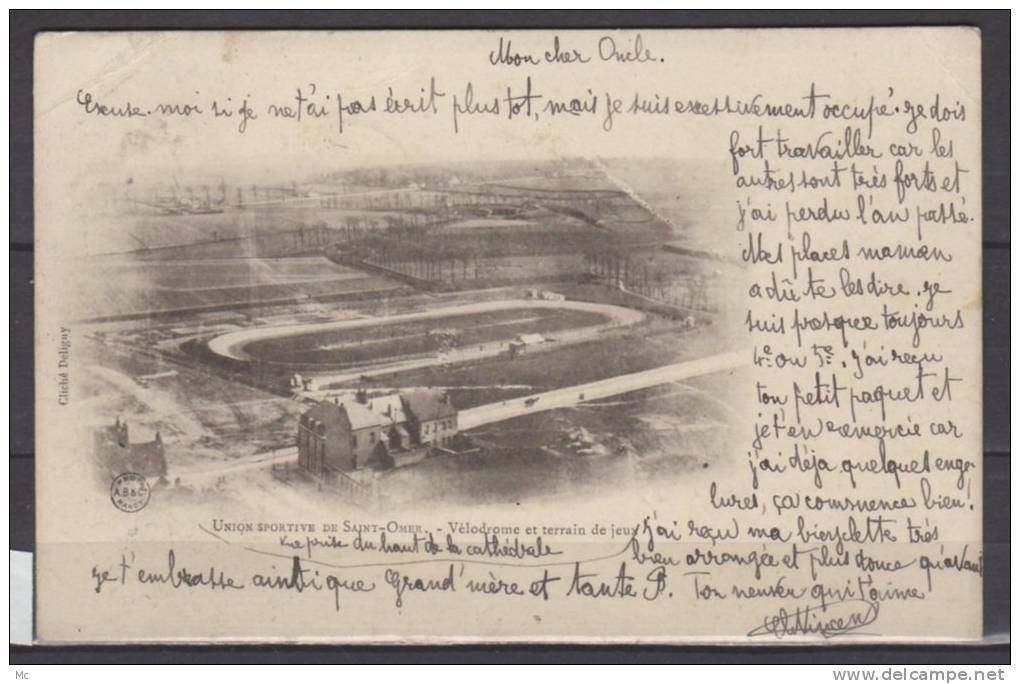 Mon cher Oncle.
Excuse-moi si je ne t'ai pas écrit plus tot, mais je suis excessivement occupé. je dois
fort travailler car les
autres sont très forts et
j'ai perdu l'an passé.
Mes places maman
a dû te les dire. je
suis presque toujours
4e ou 5e. j'ai reçu
ton petit paquet et
je t'en remercie car
j'ai déja quelques enge-
lures, ça commence bien!
j'ai reçu ma bicyclette très
bien arrangée et plus douce qu'avant
je t'embrasse ainsi que Grand'mère et tante P. Ton neveu qui t'aime
Vincent
Cliché Deligny
A.B&C
NANCY
UNION SPORTIVE DE SAINT-OMER. - Vélodrome et terrain de jeux
vue prise du haut de la cathédrale
Mc
www.delcampe.net